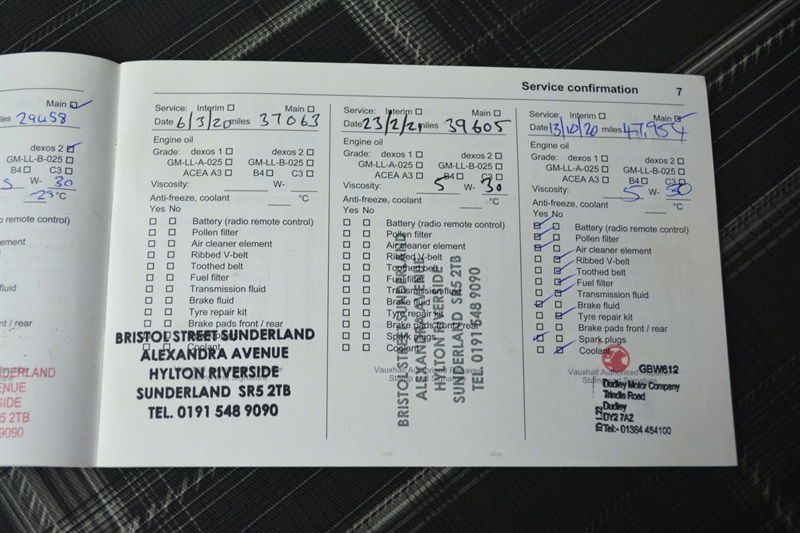 Service confirmation 7
Main
les 29458
dexos 2
GM-LL-B-025
B4 C3
5 W- 30
-29 °C
o remote control)
ement
fluid
r / rear
DERLAND
ENUE
SIDE
5 2TB
9090
Service: Interim Main
Date 6/3/20 miles 37063
Engine oil
Grade: dexos 1 dexos 2
GM-LL-A-025 GM-LL-B-025
ACEA A3 B4 C3
Viscosity: W-
Anti-freeze, coolant °C
Yes No
Battery (radio remote control)
Pollen filter
Air cleaner element
Ribbed V-belt
Toothed belt
Fuel filter
Transmission fluid
Brake fluid
Tyre repair kit
Brake pads front / rear
Coolant
BRISTOL STREET SUNDERLAND
ALEXANDRA AVENUE
HYLTON RIVERSIDE
SUNDERLAND SR5 2TB
TEL. 0191 548 9090
Service: Interim Main
Date 23/2/21 miles 39605
Engine oil
Grade: dexos 1 dexos 2
GM-LL-A-025 GM-LL-B-025
ACEA A3 B4 C3
Viscosity: 5 W- 30
Anti-freeze, coolant °C
Yes No
Battery (radio remote control)
Pollen filter
Air cleaner element
Ribbed V-belt
Toothed belt
Fuel filter
Transmission fluid
Brake fluid
Tyre repair kit
Brake pads front / rear
Spark plugs
Coolant
Vauxhall Authorised Repairer
BRISTOL STREET SUNDERLAND
ALEXANDRA AVENUE
HYLTON RIVERSIDE
SUNDERLAND SR5 2TB
TEL. 0191 548 9090
Service: Interim Main
Date 13/10/20 miles 47,954
Engine oil
Grade: dexos 1 dexos 2
GM-LL-A-025 GM-LL-B-025
ACEA A3 B4 C3
Viscosity: 5 W- 30
Anti-freeze, coolant °C
Yes No
Battery (radio remote control)
Pollen filter
Air cleaner element
Ribbed V-belt
Toothed belt
Fuel filter
Transmission fluid
Brake fluid
Tyre repair kit
Brake pads front / rear
Spark plugs
Coolant
Vauxhall Authorised
GBW612
Dudley Motor Company
Trindle Road
Dudley
DY2 7AZ
Tel:- 01384 454100